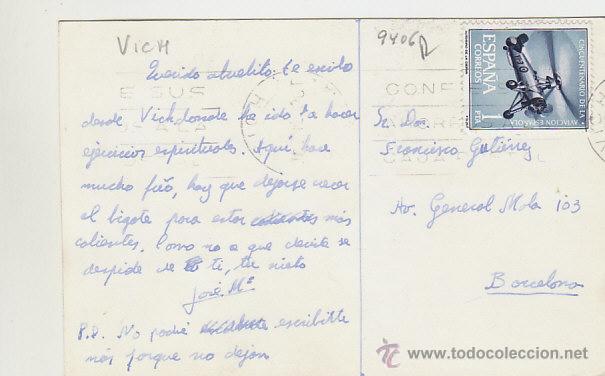 VICH
9406R
Querido abuelito: te escribo
desde Vich donde he ido ha hacer
ejercicios espirituales. Aquí hace
mucho frío, hay que dejarse crecer
el bigote para estar calientes más
calientes. Como no a que decirte se
despide de ti, tu nieto
José Mª
P.D. No podré escribirte
más porque no dejan
CINCUENTENARIO DE LA
AVIACION ESPAÑOLA
ESPAÑA
CORREOS
1 PTA
Sr. Don
Francisco Gutiérrez
Av. General Mola 103
Barcelona
tc www.todocoleccion.net